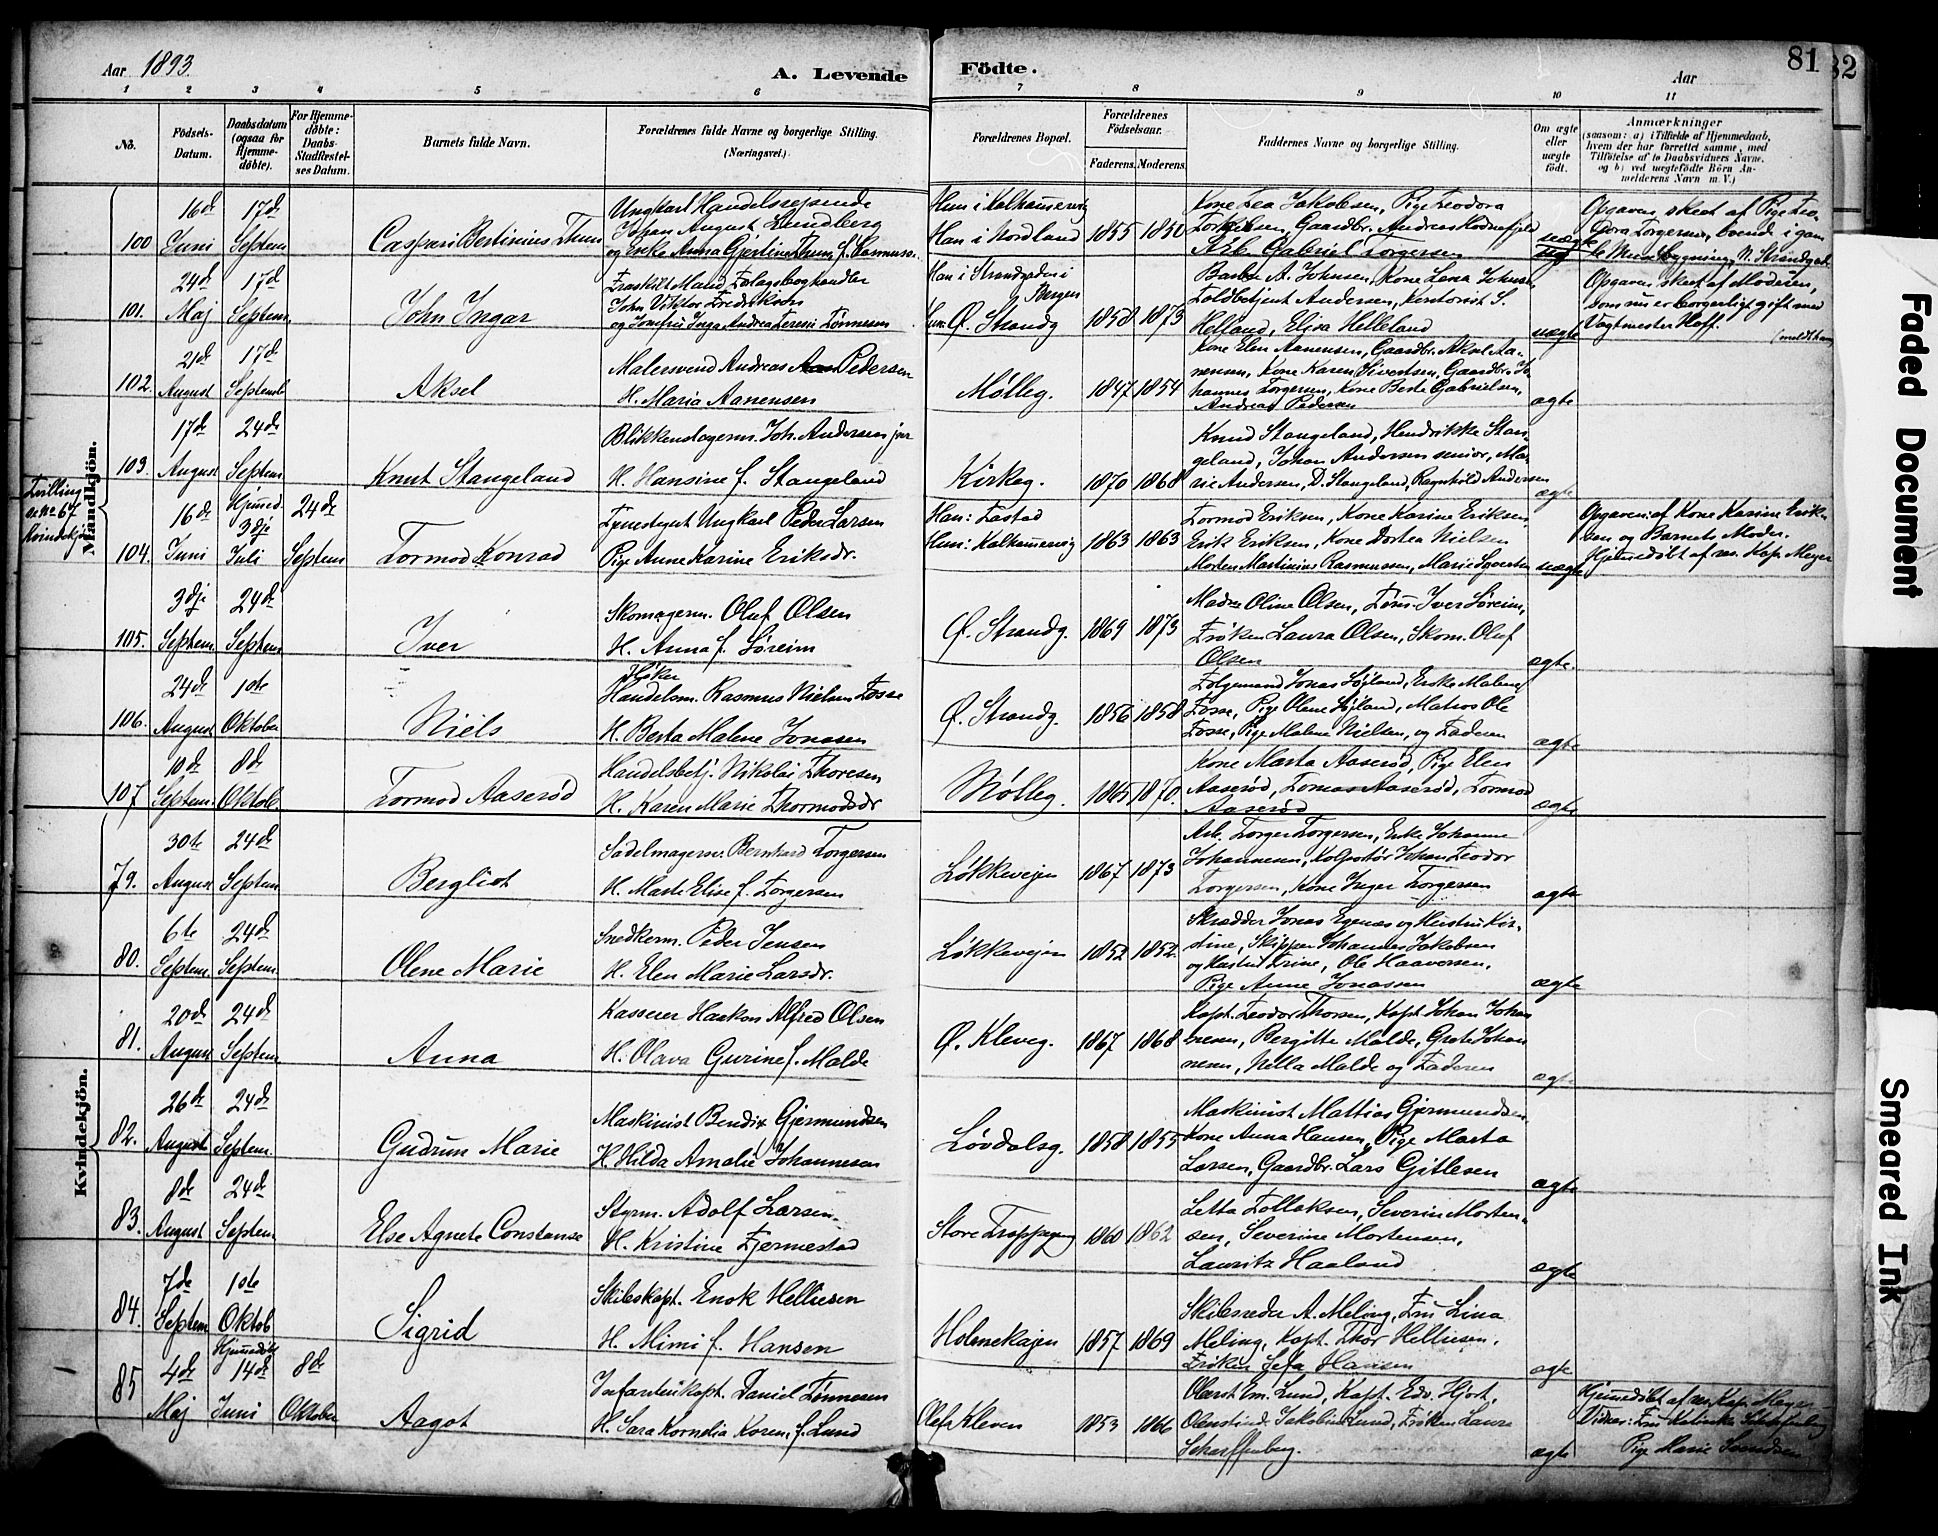 Aar 1893.
A. Levende Födte.
Aar
81
82
1 2 3 4 5 6 7 8 9 10 11
No.
Födsels-Datum.
Daabsdatum (ogsaa for Hjemme-döbte).
For Hjemme-döbte: Daabs-Stadfæstel-ses Datum.
Barnets fulde Navn.
Forældrenes fulde Navne og borgerlige Stilling. (Næringsvei.)
Forældrenes Bopæl.
Forældrenes Födselsaar.
Faderens. Moderens.
Faddernes Navne og borgerlige Stilling.
Om ægte eller uægte födt.
Anmærkninger
(saasom: a) i Tilfælde af Hjemmedaab,
hvem der har forrettet samme, med
Tilföielse af to Daabsvidners Navne.
og b) ved uægtefödte Börn An-
melderens Navn m. V.)
Mandkjön.
100 16de Juni 17de Septem. Caspari Bertinius Thum
Ungkarl Handelsreisende
Johan August Lundberg
og Enke Anna Gjertine Thum f. Rasmuss.
Hun i Kalhammervig
Han i Nordland 1855 1850
Kone Lea Jakobsen, Pige Teodora
Torkelsen, Gaardbr. Andreas
Arb. Gabriel Torgersen
uægte
Opgaven skeet af Pige Teo-
dora Torgersen, boende i gam
101. 24de Maj 17de Septem. John Ingar
Fraskilt Mand, Forlagsboghandler
John Viktor Fredrikson
og Jomfru Inga Andrea Tereni Tönnesen
Han i Strandgaden i Bergen
Hun Ø. Strandg 1858 1873
A. Johnsen, Kone Lena Johnsen
Toldbetjent Andersen, Kontorist S.
Helland, Elisa Helleland
uægte
Opgaven skeet af Moderen,
som nu er borgerligt gift med
Vagtmester Hoff.
102. 21de August 17de Septemb Aksel
Malersvend Andreas Pedersen
H. Maria Aanensen
Mølleg. 1847 1854
Kone Elen Aanensen, Gaardbr. Aksel Aa-
nensen, Kone Karen Sivertsen, Gaardbr. Jo
hannes Torgersen, Kone Berte Gabrielsen,
Andreas Pedersen
ægte
103. 17de August 24de Septem. Knut Stangeland
Blikkenslagerm. Joh. Andersen jun
H. Hansine f. Stangeland
Kirkeg. 1870 1868
Knud Stangeland, Hendrikke Stan-
geland, Johan Andersen senior, Ma-
rie Andersen, D. Stangeland, Ragnhild Andersen
ægte
Tvilling
104. 16de Juni Hjemmed. 3dje Juli 24de Septem Tormod Konrad
Tjenestegut Ungkarl Peder Larsen
Pige Anne Karine Eriksdr.
Han: Tastad
Hun: Kalhammervig 1863 1863
Tormod Eriksen, Kone Karine Eriksen
Erik Eriksen, Kone Dortea Nielsen
Morten Martinius Rasmussen, Marie Sivertsen
uægte
Opgaven: af Kone Karine Erik-
sen og Barnets Moder.
Hjemmedöbt af res. Kap. Meyer
105. 3dje Septem. 24de Septem. Iver
Skomagerm. Oluf Olsen
H. Anna f. Söreim
Ø. Strandg. 1869 1873
Madme Oline Olsen, Töm. Iver Söreim,
Fröken Laura Olsen, Skom. Oluf
Olsen
ægte.
106. 24de August 1ste Oktober Niels
Höker
Handelsm. Rasmus Nielsen Fosse
H. Berta Malene Jonasen
Ø. Strandg. 1856 1858
Folgemand Jonas Lojland, Enke Malene
Fosse, Pige Olene Lojland, Matros Ole
Fosse, Pige Malene Nielsen, og Faderen
ægte
107 10de Septem. 8de Oktob. Tormod Aaseröd
Handelsbetj. Nikolai Thoresen
H. Karen Marie Thormodsdr
Mölleg. 1865 1870.
Kone Marta Aaseröd, Pige Elen
Aaseröd, Tomas Aaseröd, Tormod
Aaseröd
ægte
Kvindekjön.
79. 30te August 24de Septem Bergliot
Sadelmagersv. Bernhard Torgersen
H. Marte Elise f. Torgersen
Lökkevejen 1867 1873
Arb. Torger Torgersen, Enke Johanne
Johannesen, Kolportör Johan Teodor
Torgersen, Kone Inger Torgersen
ægte
80. 6te Septem. 24de Septem. Olene Marie
Snedkerm. Peder Jensen
H. Elen Marie Larsdr.
Lökkevejen 1852 1852.
Skrædder Jonas Egenæs og Hustru Kir-
stine, Skipper Johannes Jakobsen
og Hustru Trine, Ole Haaversen,
Pige Anne Jonassen
ægte
81. 20de August 24de Septem. Anna
Kasserer Haakon Alfred Olsen
H. Olava Gurine f. Malde
Ø. Kleveg. 1867 1868
Kapt. Teodor Thorsen, Kapt. Johan Johan
nesen, Bergitte Malde, Grete Johan
nesen, Nella Malde og Faderen
ægte
82. 26de August 24de Septem. Gudrun Marie
Maskinist Bendix Gjermundsen
H. Hilda Amalie Johannesen
Lövdalsg. 1858 1855
Maskinist Mattias Gjermundsen,
Kone Anna Hansen, Pige Marta
Larsen, Gaardbr. Lars Gitlesen
ægte
83. 8de August 24de Septem. Else Agnete Constanse
Styrm. Adolf Larsen
H. Kristine Fjermestad
Store Trappegang 1860 1862
Letta Tollaksen, Severin Morten-
sen, Severine Mortensen,
Lauritz Haaland
ægte
84. 7de Septem 1ste Oktob Sigrid
Skibskapt. Enok Helliesen
H. Mimi f. Hansen
Holmekajen 1857 1869
Skibsreder A. Meling, Fru Lina
Meling, Kapt. Thor Helliesen,
Fröken Sefa Hansen
ægte
85 4de Maj Hjemmedöbt 14de Juni 8de Oktober Aagot
Infanterikapt. Daniel Tönnesen
H. Sara Kornelia Koren, f. Lund
Olafs Kleven 1853 1866
Oberst Em. Lund, Kapt. Edv. Hjort,
Oberstinde Jakobine Lund, Fröken Laura
Scharffenberg.
ægte
Hjemmedöbt af res. Kap. Meyer
Vidner: Fru Scharffenberg
Pige Marie Svendsen
Faded Document
Smeared Ink